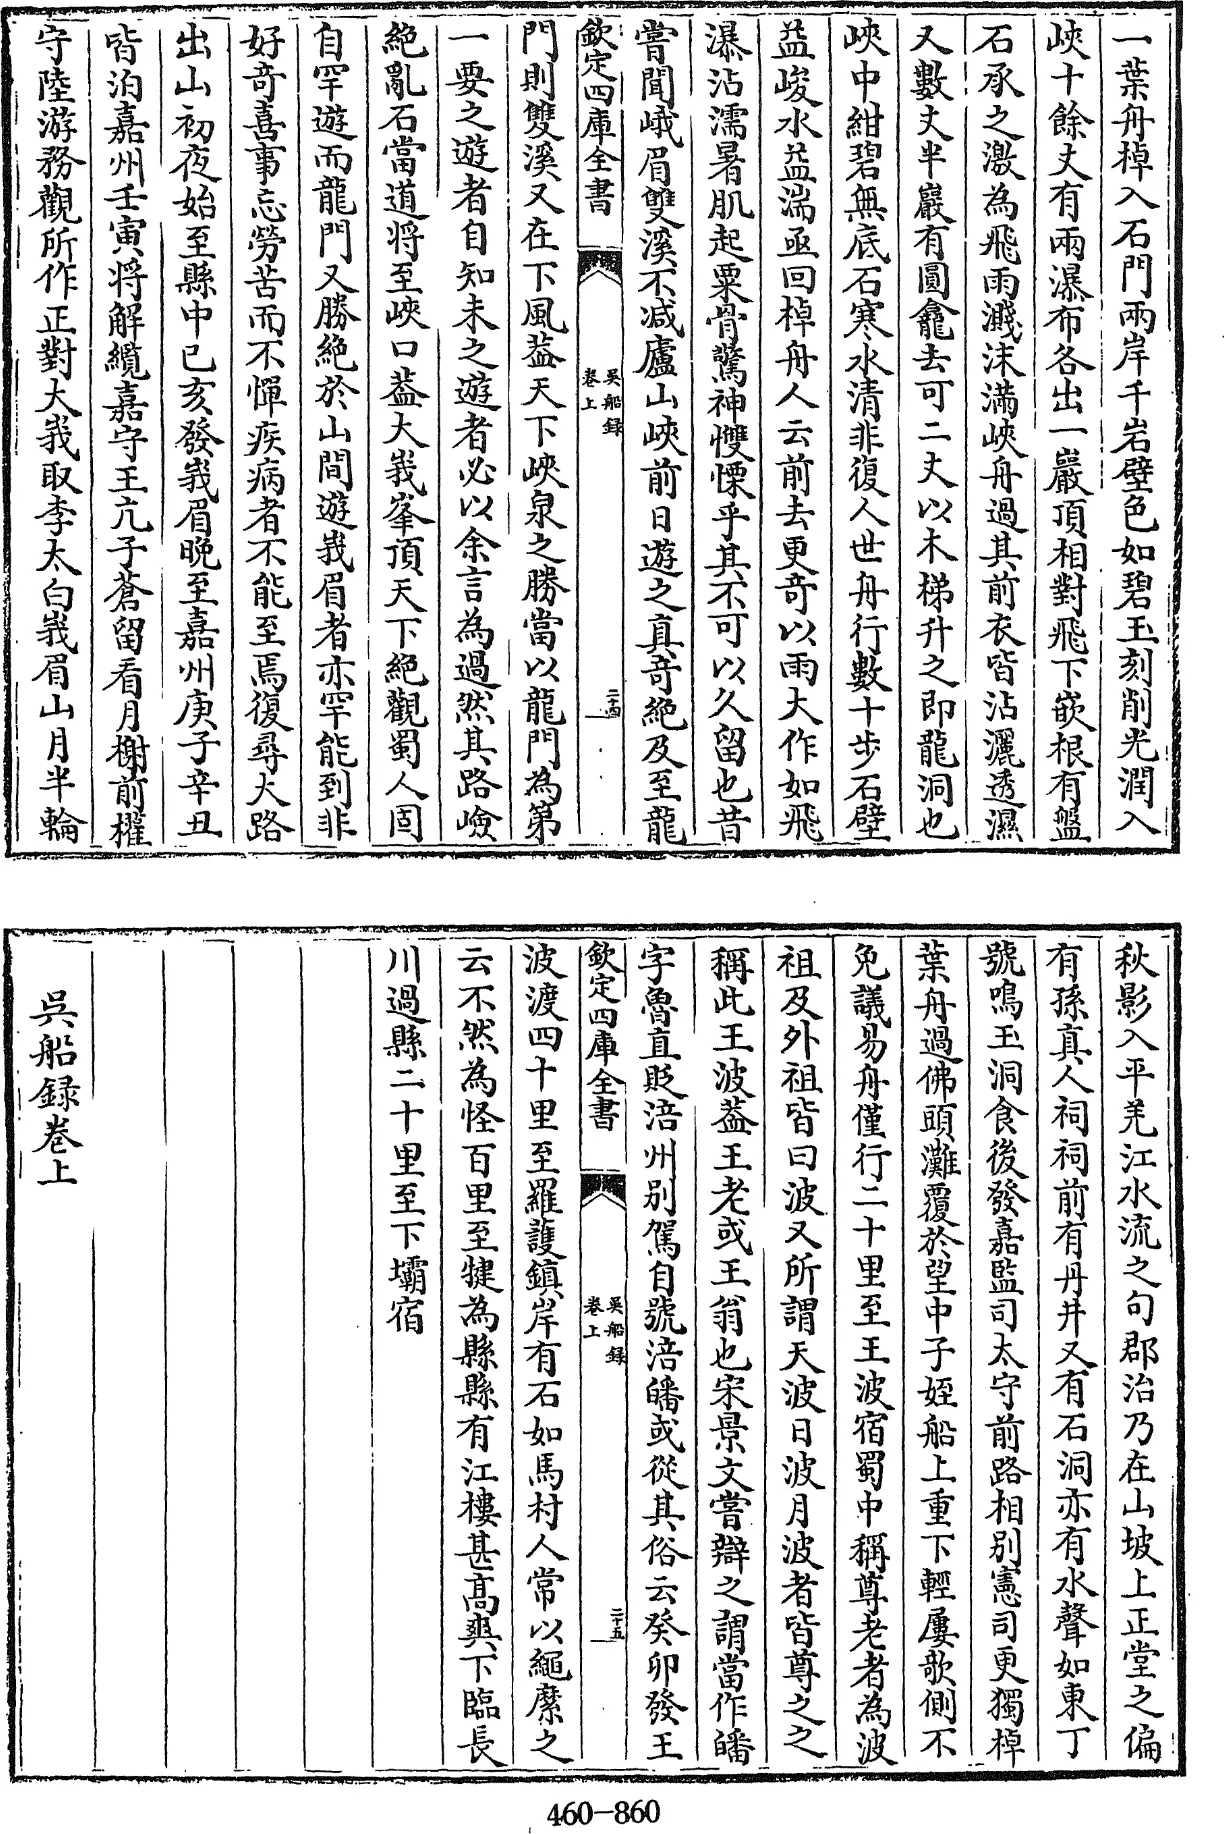 一葉舟棹入石門兩岸千岩壁色如碧玉刻削光潤入
峽十餘丈有兩瀑布各出一巖頂相對飛下嵌根有盤
石承之激為飛雨濺沫滿峽舟過其前衣皆沾灑透濕
又數丈半巖有圓龕去可二丈以木梯升之即龍洞也
峽中紺碧無底石寒水清非復人世舟行數十步石壁
益峻水益湍亟回棹舟人云前去更奇以雨大作如飛
瀑沾濡暑肌起粟骨驚神慴慄乎其不可以久留也昔
嘗聞峨眉雙溪不减廬山峽前日遊之真奇絶及至龍
欽定四庫全書
吳船録
卷上
二十四
門則雙溪又在下風葢天下峽泉之勝當以龍門為第
一要之遊者自知未之遊者必以余言為過然其路嶮
絶亂石當道將至峽口葢大峩峯頂天下絶觀蜀人固
自罕遊而龍門又勝絶於山間遊峩眉者亦罕能到非
好奇喜事忘勞苦而不憚疾病者不能至焉復尋大路
出山初夜始至縣中己亥發峩眉晚至嘉州庚子辛丑
皆泊嘉州壬寅將解纜嘉守王亢子蒼留看月榭前權
守陸游務觀所作正對大峩取李太白峩眉山月半輪
秋影入平羌江水流之句郡治乃在山坡上正堂之偏
有孫真人祠祠前有丹井又有石洞亦有水聲如東丁
號鳴玉洞食後發嘉監司太守前路相别憲司更獨棹
葉舟過佛頭灘覆於望中子姪船上重下輕屢欹側不
免議易舟僅行二十里至王波宿蜀中稱尊老者為波
祖及外祖皆曰波又所謂天波日波月波者皆尊之之
稱此王波葢王老或王翁也宋景文嘗辯之謂當作皤
字魯直貶涪州别駕自號涪皤或從其俗云癸卯發王
欽定四庫全書
吳船録
卷上
二十五
波渡四十里至羅護鎮岸有石如馬村人常以繩縻之
云不然為怪百里至犍為縣縣有江樓甚髙爽下臨長
川過縣二十里至下壩宿
吳船録卷上
460-860